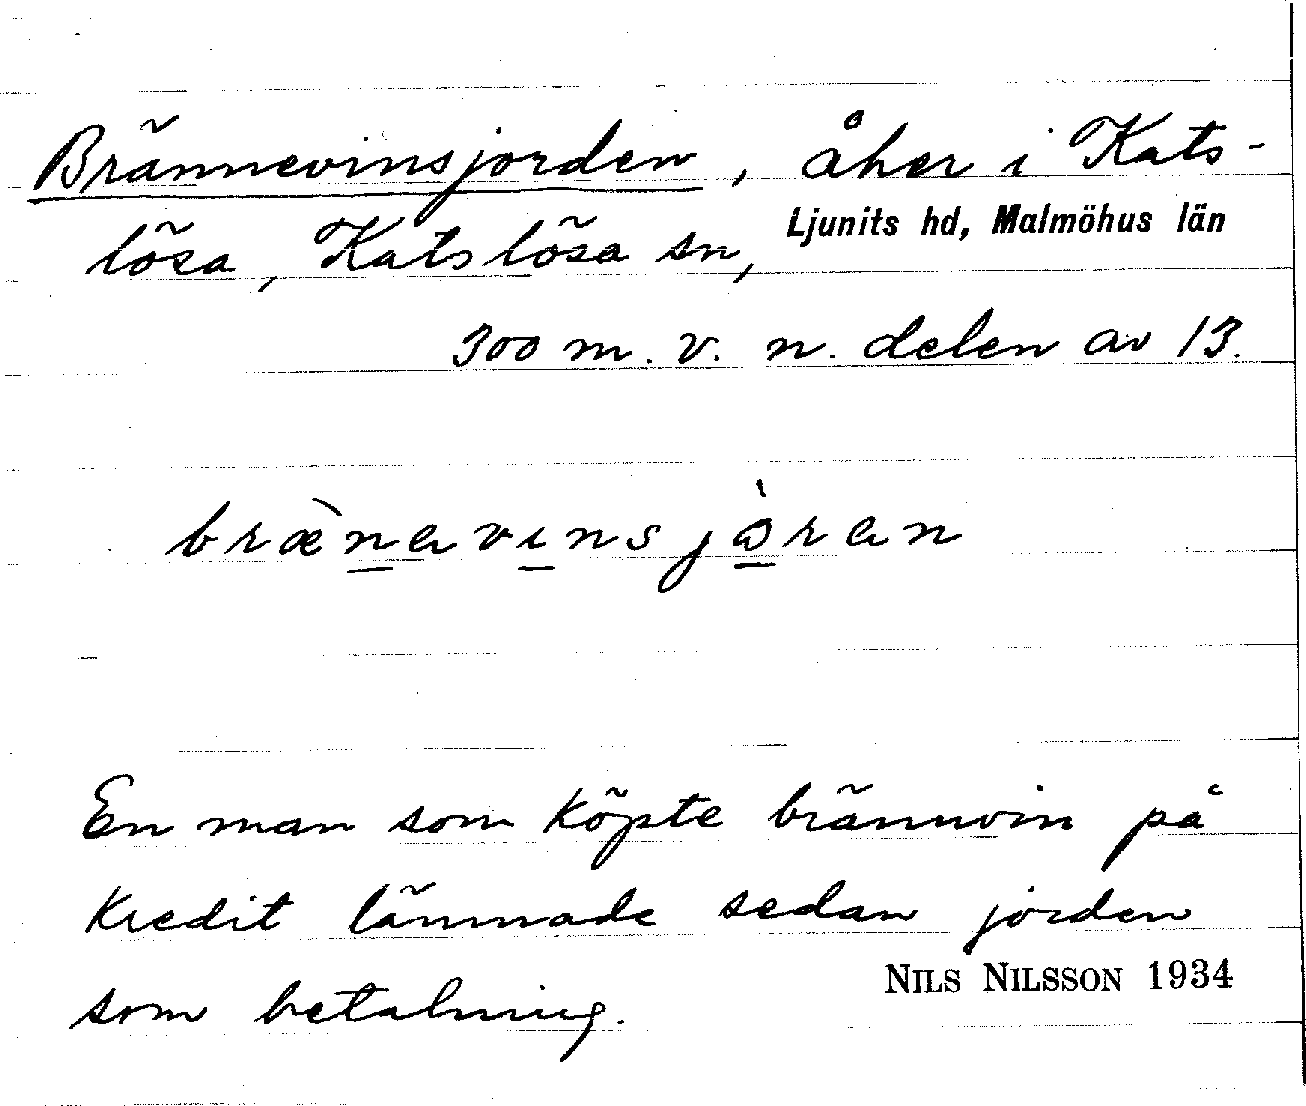 Brännevinsjorden, åker i Kats-
lösa, Katslösa sn, Ljunits hd, Malmöhus län
300 m. v. n. delen av 13.
brænavinsjåran
En man som köpte brännvin på
kredit lämnade sedan jorden
som betalning.
NILS NILSSON 1934